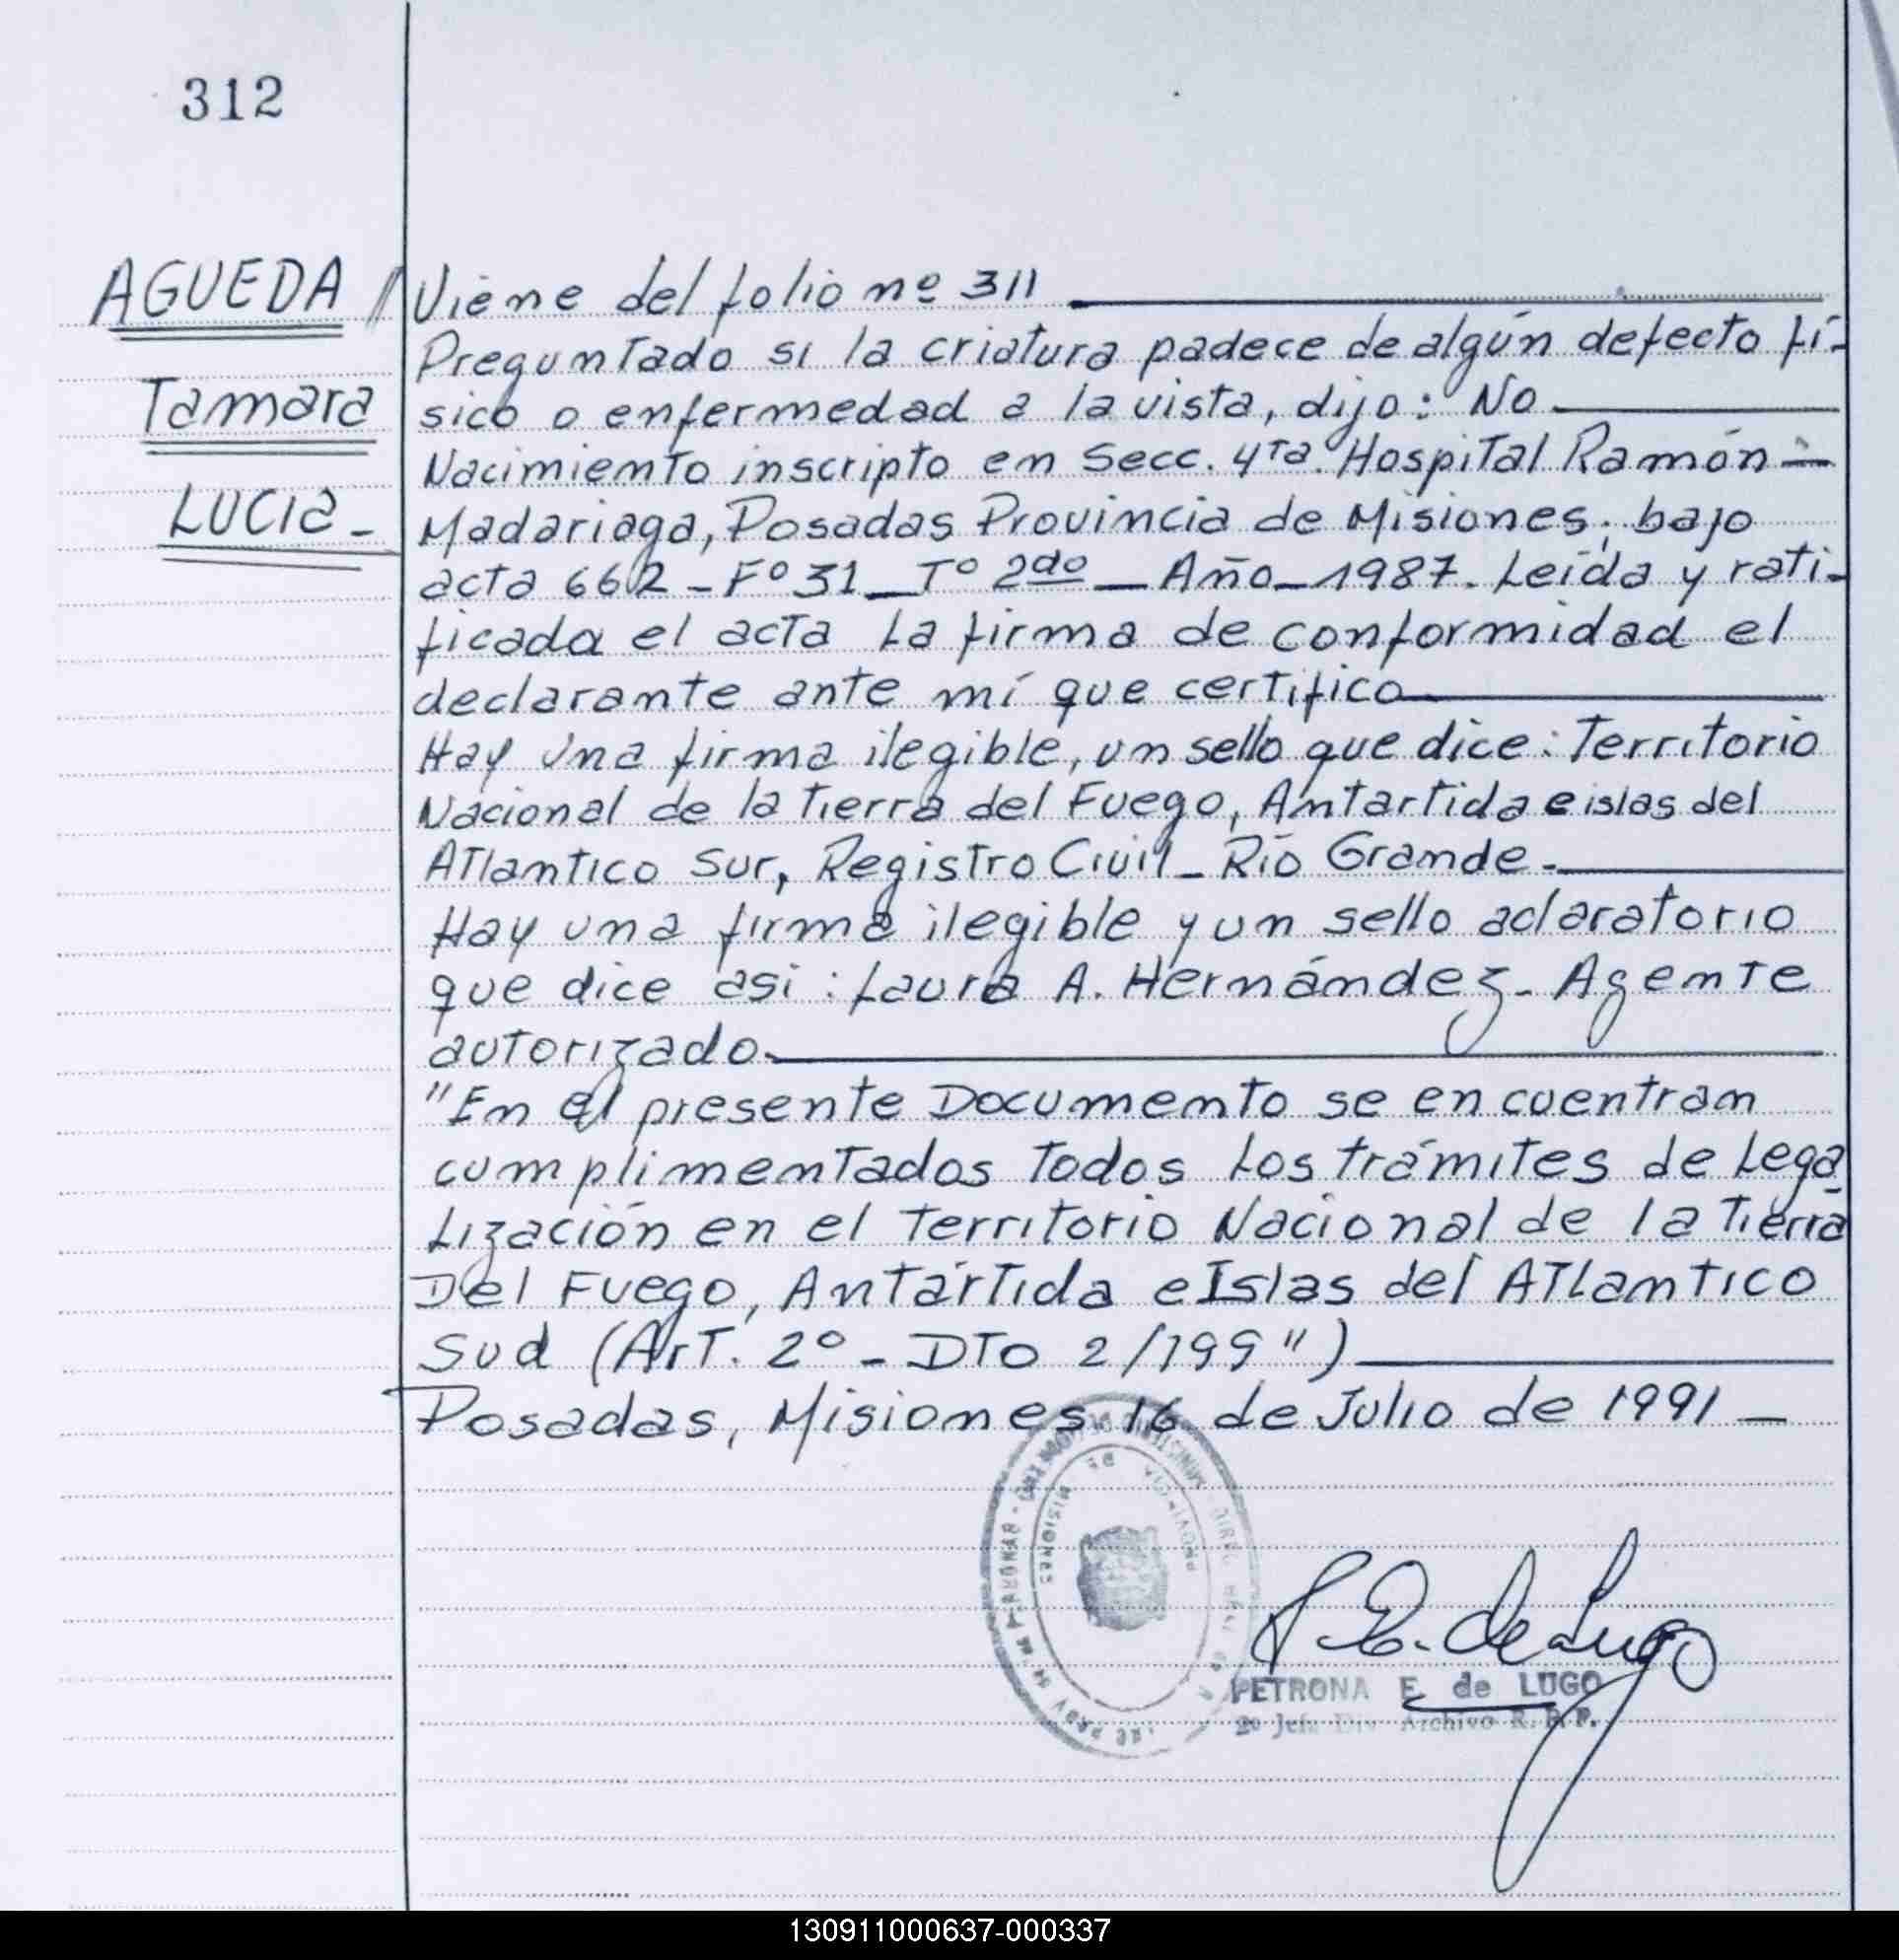 312
AGUEDA //
Tamara
LUCIa -
Viene del folio nº 311
Preguntado si la criatura padece de algún defecto fí-
sico o enfermedad a la vista, dijo: No
Nacimiento inscripto en Secc. 4ta. Hospital Ramón -
Madariaga, Posadas Provincia de Misiones; bajo
acta 662 - Fº 31 - Tº 2do - Año - 1987. Leída y rati-
ficada el acta la firma de conformidad el
declarante ante mí que certifico
Hay una firma ilegible, un sello que dice: Territorio
Nacional de la Tierra del Fuego, Antartida e islas del
Atlantico Sur, Registro Civil - Río Grande.
Hay una firma ilegible y un sello aclaratorio
que dice asi: Laura A. Hernández - Agente
autorizado.
"En el presente Documento se encuentran
cumplimentados todos los trámites de Lega
lización en el Territorio Nacional de la Tierra
Del Fuego, Antártida e Islas del Atlantico
Sud (Art. 2º - DTO 2/199")
Posadas, Misiones 16 de Julio de 1991 -
PROVINCIA DE MISIONES
P. E. de Lugo
PETRONA E. de LUGO
2º Jefe Div Archivo R. P. P.
130911000637-000337